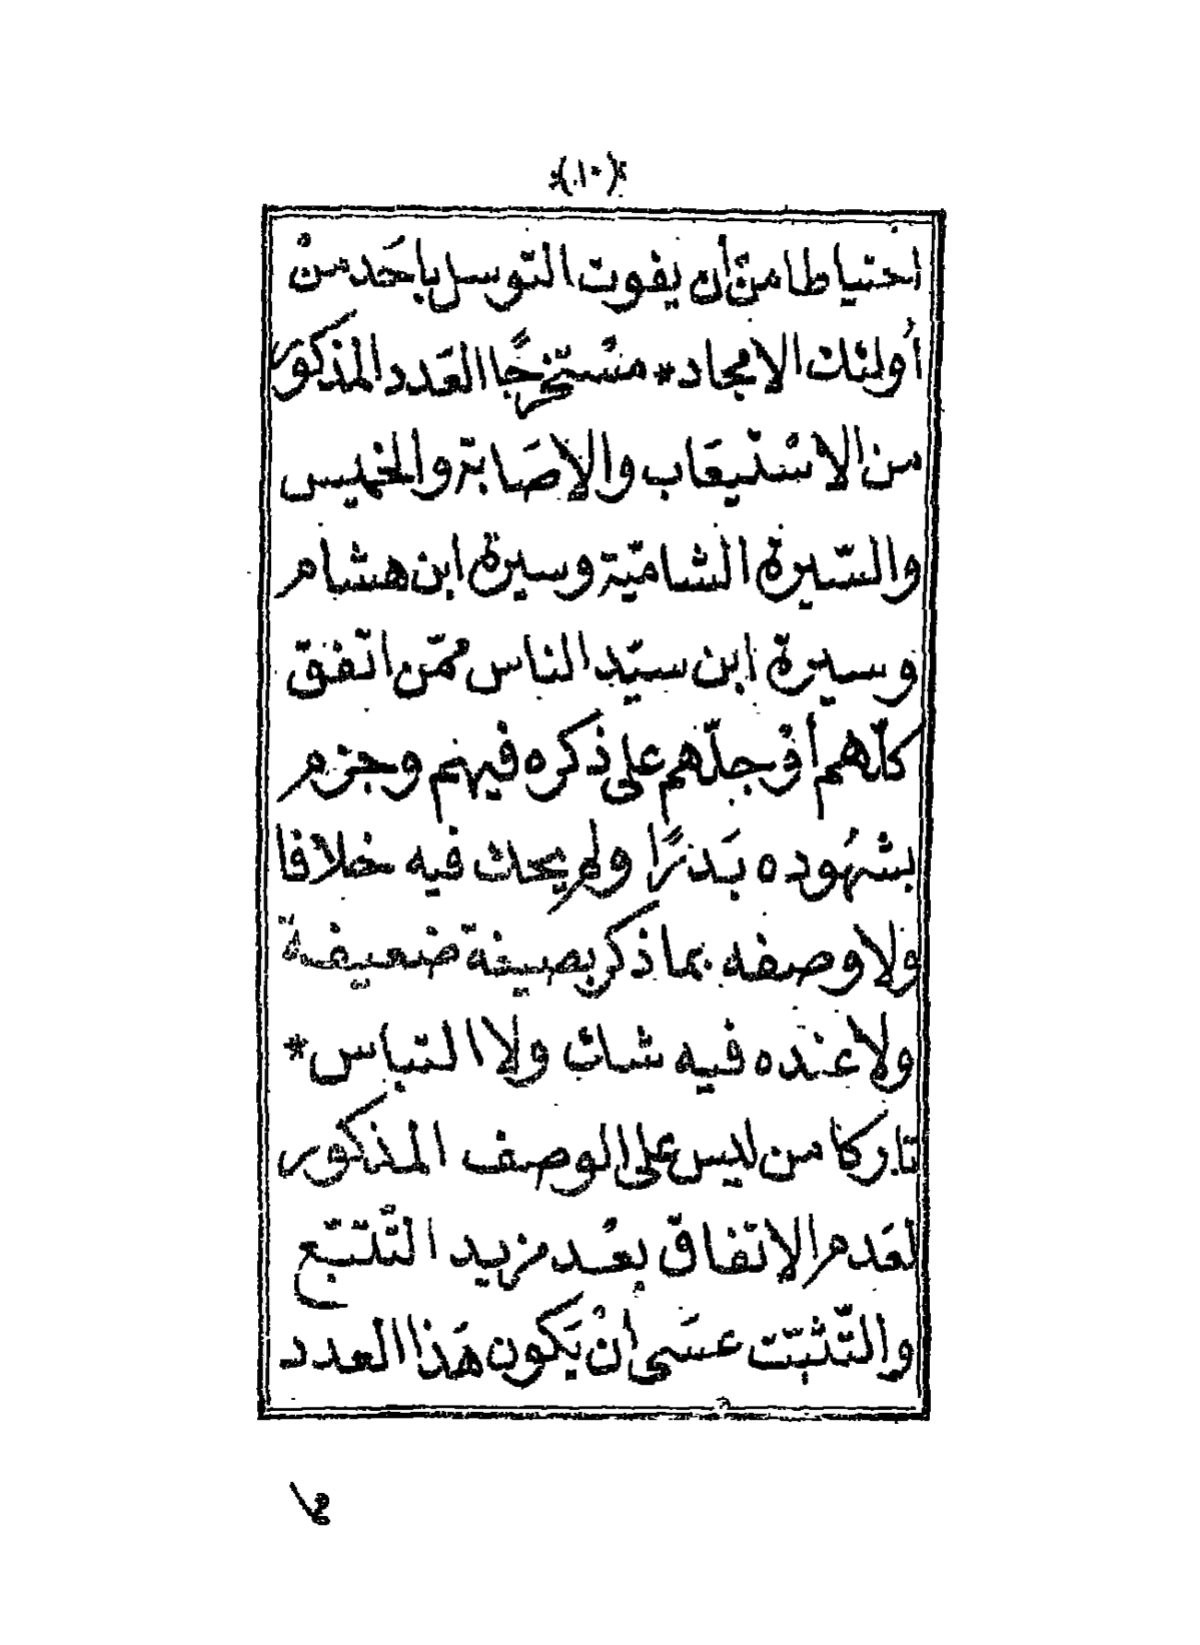 (١٠)
احتياطا من أن يفوت التوسل بأحَد منْ
أولئك الامجاد * مسْتخرجًا العَدد المذكور
من الاسْتيعَاب والاصَابة والخميس
والسّيرة الشاميّة وسيرة ابن هشام
وسيرة ابن سيّد الناس ممّن اتّفقّ
كلّهم أوْ جلّهم على ذكره فيهم وجزم
بشهُوده بَدرًا ولم يحك فيه خلافا
ولا وصفه بما ذكر بصيغة ضعيفة
ولا عنده فيه شك ولا التباس *
تاركا من ليس على الوصف المذكور
لعَدم الاتفاقّ بعْد مزيد التّتبّع
والتّثبّت عسَى أنْ يَكون هَذا العدد